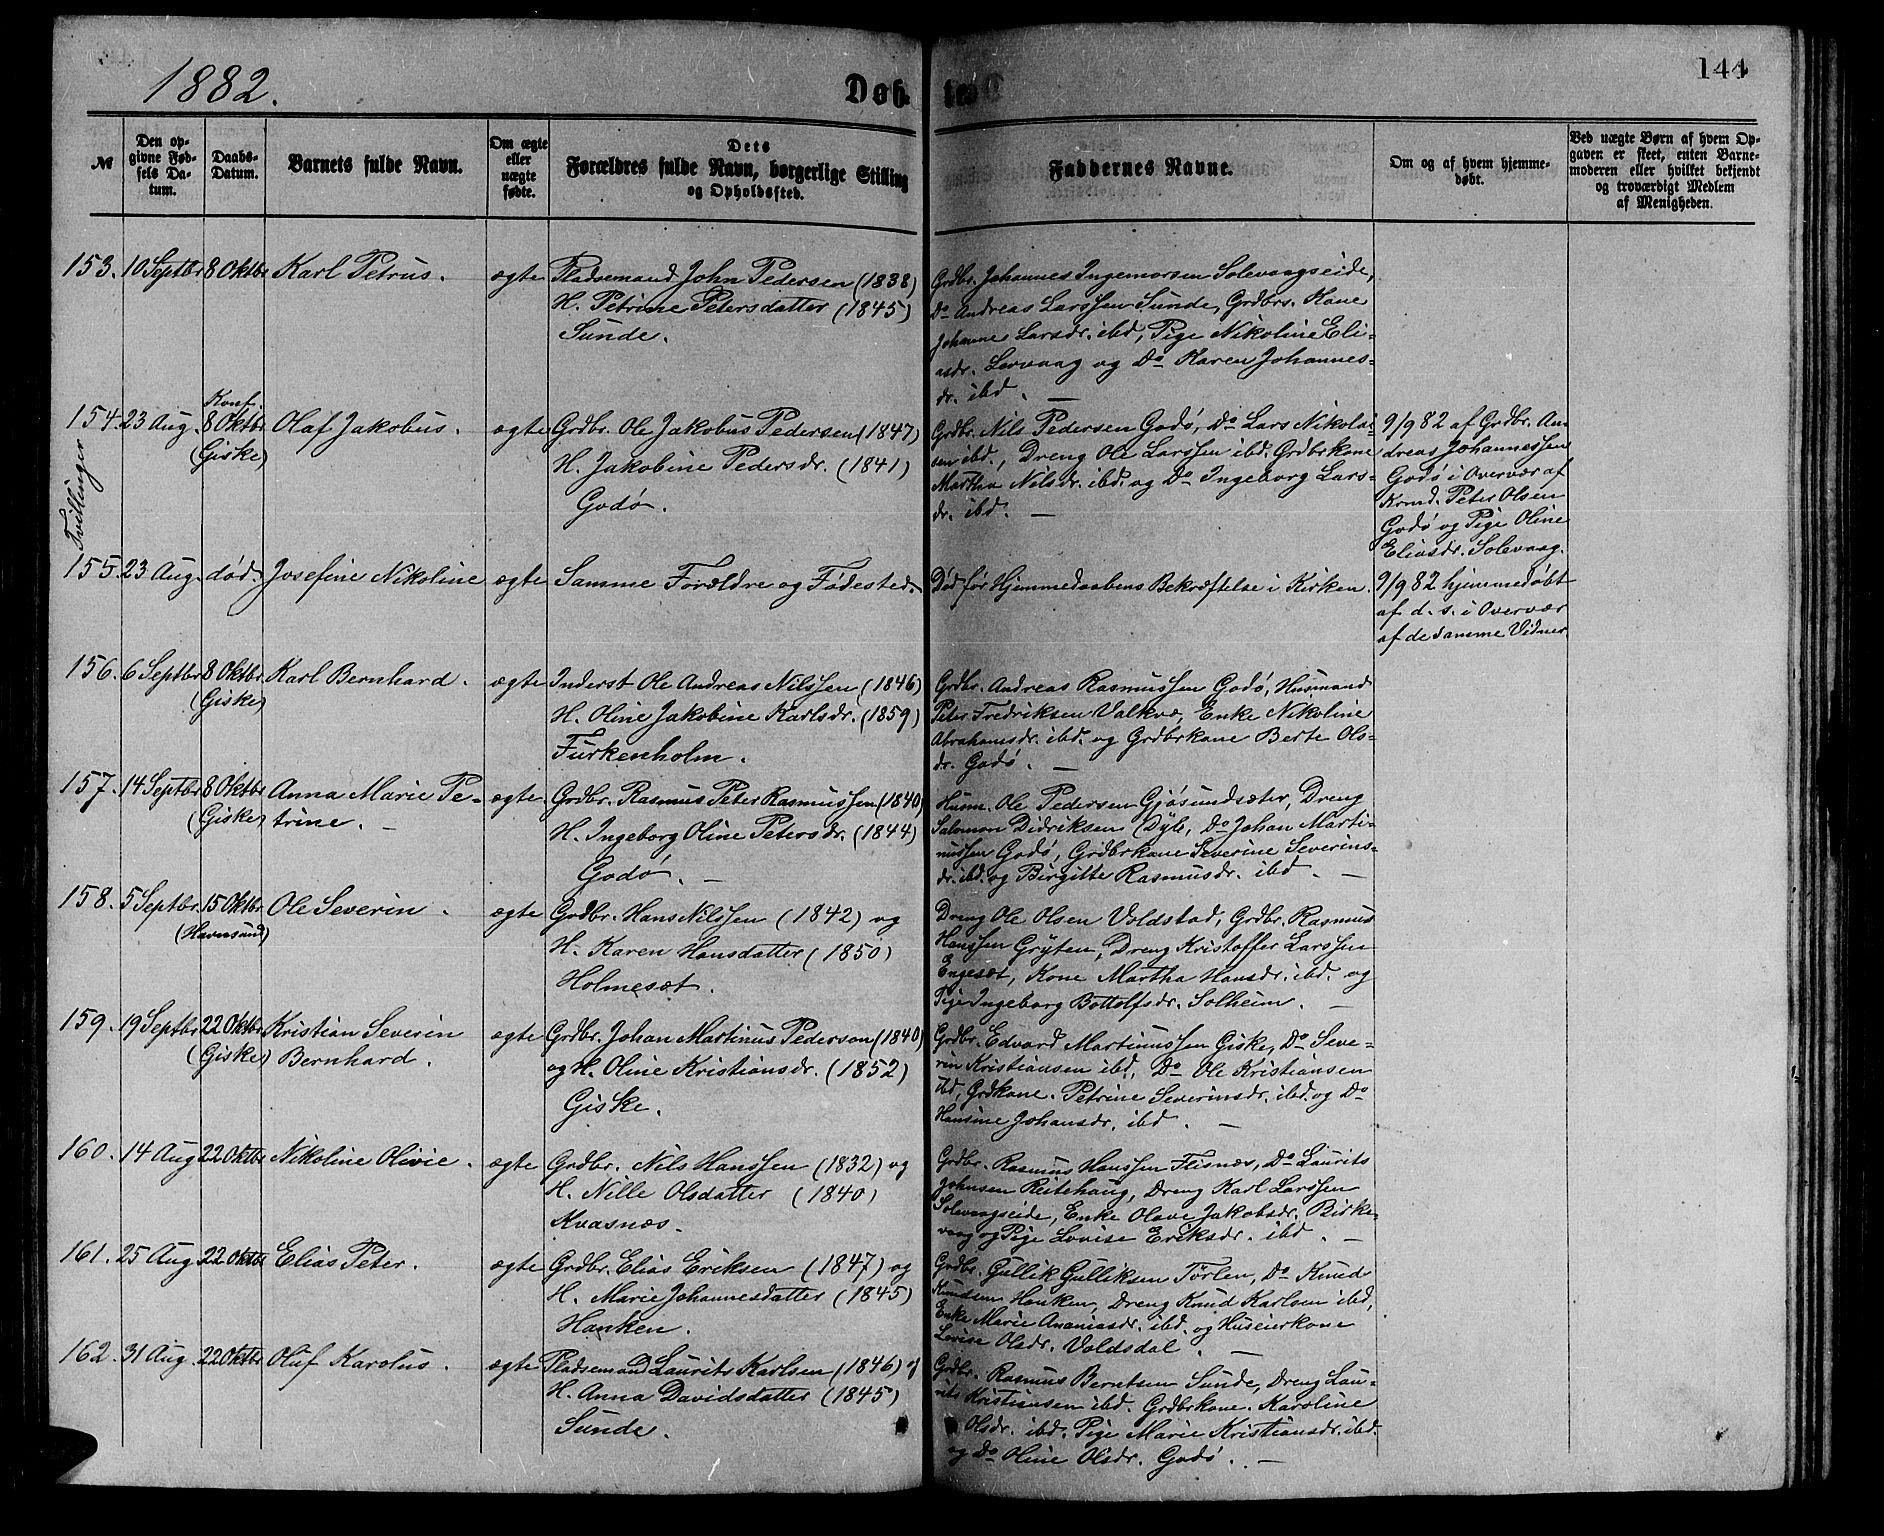 1882.
Døb
te.
144
№
Den op-
givne Fød-
sels Da-
tum.
Daabs-
Datum.
Barnets fulde Navn.
Om ægte
eller
uægte
fødte.
Dets
Forældres fulde Navn, borgerlige Stilling
og Opholdssted.
Faddernes Navne.
Om og af hvem hjemme-
døbt.
Ved uægte Børn af hvem Op-
gaven er skeet, enten Barne-
moderen eller hvilket bekjendt
og troværdigt Medlem
af Menigheden.
153. 10 Septbr 8 Oktbr Karl Petrus. ægte Pladsemand John Pedersen (1838)
H. Petrine Petersdatter (1845)
Sunde.
Grdbr. Johannes Ingemorsen Solevaagseide,
Do Andreas Larssen Sunde, Grdbrs. Kone
Johanne Larsdr. ibd, Pige Nikoline Eli-
asdr. Lervaag og Do Karen Johannes-
dr. ibd. —
Tvillinger
154. 23 Aug. Konf.
8 Oktbr
(Giske)
Olaf Jakobus. ægte Grdbr. Ole Jakobus Pedersen (1847)
H. Jakobine Pedersdr. (1841)
Godø.
Grdbr. Nils Pedersen Godø, Do Lars Nikolai-
sen ibd., Dreng Ole Larssen ibd. Grdbrkone
Martha Nilsdr. ibd. og Do Ingeborg Lars-
dr. ibd. —
9/9 82 af Grdbr. An-
dreas Johannessen
Godø i Overvær af
Krmd. Peter Olsen
Godø og Pige Oline
Eliasdr. Solevaag.
155. 23 Aug. død. Josefine Nikoline ægte Samme Forældre og Fødested.
Død før Hjemmedaabens Bekræftelse i Kirken.
9/9 82 hjemmedøbt
af d. s. i Overvær
af de samme Vidner.
156. 6 Septbr 8 Oktbr
(Giske)
Karl Bernhard. ægte Inderst Ole Andreas Nilssen (1846)
H. Oline Jakobine Karlsdr. (1859)
Furkenholm.
Grdbr. Andreas Rasmussen Godø, Husmand
Peter Fredriksen Valkvæ, Enke Nikoline
Abrahamsdr. ibd. og Grdbrkone Berte Ols-
dr. Godø. —
157. 14 Septbr 8 Oktbr
(Giske)
Anna Marie Pe-
trine. —
ægte. Grdbr. Rasmus Peter Rasmussen (1840)
H. Ingeborg Oline Petersdr. (1844)
Godø. —
Husm. Ole Pedersen Gjøsundsæter, Dreng
Salomon Didriksen Dyle, Do Johan Marti-
nussen Godø, Grdbrkone Severine Severins-
dr. ibd. og Birgitte Rasmusdr. ibd. —
158. 5 Septbr 15 Oktbr
(Havnsund)
Ole Severin. ægte Grdbr. Hans Nilssen (1842) og
H. Karen Hansdatter (1850)
Holmesæt.
Dreng Ole Olsen Voldstad, Grdbr. Rasmus
Hanssen Gryten, Dreng Kristoffer Larssen
Engesæt, Kone Martha Hansdr. ibd. og
Pige Ingeborg Bottolfsdr. Solheim. —
159. 19 Septbr 22 Oktbr
(Giske)
Kristian Severin
Bernhard.
ægte Grdbr. Johan Martinus Pederson (1840)
og H. Oline Kristiansdr. (1852)
Giske.
Grdbr. Edvard Martinussen Giske, Do Seve-
rin Kristiansen ibd, Do Ole Kristiansen
ibd, Grdkone. Petrine Severinsdr. ibd. og Do
Hansine Johansdr. ibd. —
160. 14 Aug 22 Oktbr Nikoline Olivie. ægte Grdbr. Nils Hanssen (1832) og
H. Nille Olsdatter (1840)
Kvasnæs.
Grdbr. Rasmus Hanssen Flisnæs, Do Laurits
Johnsen Reitehaug, Dreng Karl Larssen
Solevaagseide, Enke Olave Jakobsdr. Birke-
vaag og Pige Lovise Eriksdr. ibd. —
161. 25 Aug 22 Oktbr Elias Peter. ægte Grdbr. Elias Eriksen (1847) og
H. Marie Johannesdatter (1845)
Hanken.
Grdbr. Gullik Gulliksen Tørlen, Do Knud
Knudsen Hanken, Dreng Knud Karlsen ibd,
Enke Marie Ananiasdr. ibd. og Huseierkone
Lovise Olsdr. Voldsdal. —
162. 31 Aug. 22 Oktbr Oluf Karolus. ægte Pladsemand Laurits Karlsen (1846) og
H. Anna Davidsdatter (1845)
Sunde.
Grdbr. Rasmus Berntsen Sunde, Dreng Lau-
rits Kristiansen ibd. Grdbrkone. Karoline
Olsdr. ibd. Pige Marie Kristiansdr. ibd.
og Do Oline Olsdr. Godø. —